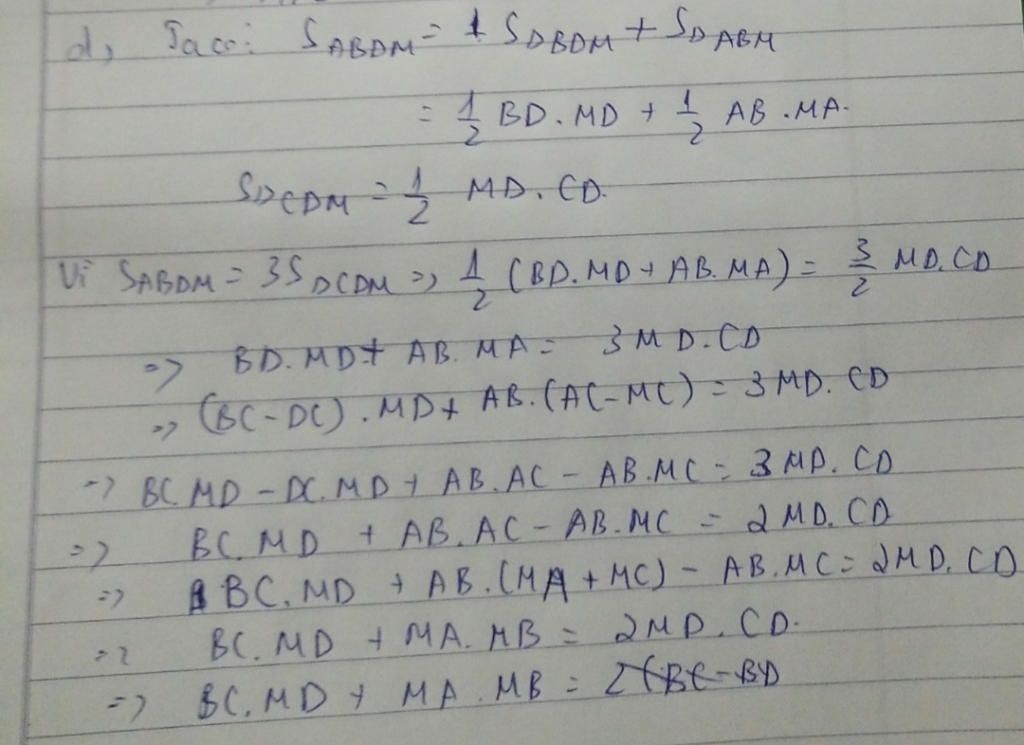 d, Ta có: S ABDM = 1 S DBDM + S DABM
= 1/2 BD.MD + 1/2 AB.MA.
S DCDM = 1/2 MD.CD.
Vì S ABDM = 3S DCDM => 1/2 (BD.MD + AB.MA) = 3/2 MD.CD
=> BD.MD + AB.MA = 3MD.CD
=> (BC-DC).MD + AB.(AC-MC) = 3MD.CD
=> BC.MD - DC.MD + AB.AC - AB.MC = 3MD.CD
=> BC.MD + AB.AC - AB.MC = 2MD.CD
=> BC.MD + AB.(MA+MC) - AB.MC = 2MD.CD
=> BC.MD + MA.MB = 2MD.CD.
=> BC.MD + MA.MB = 2(BC-BD